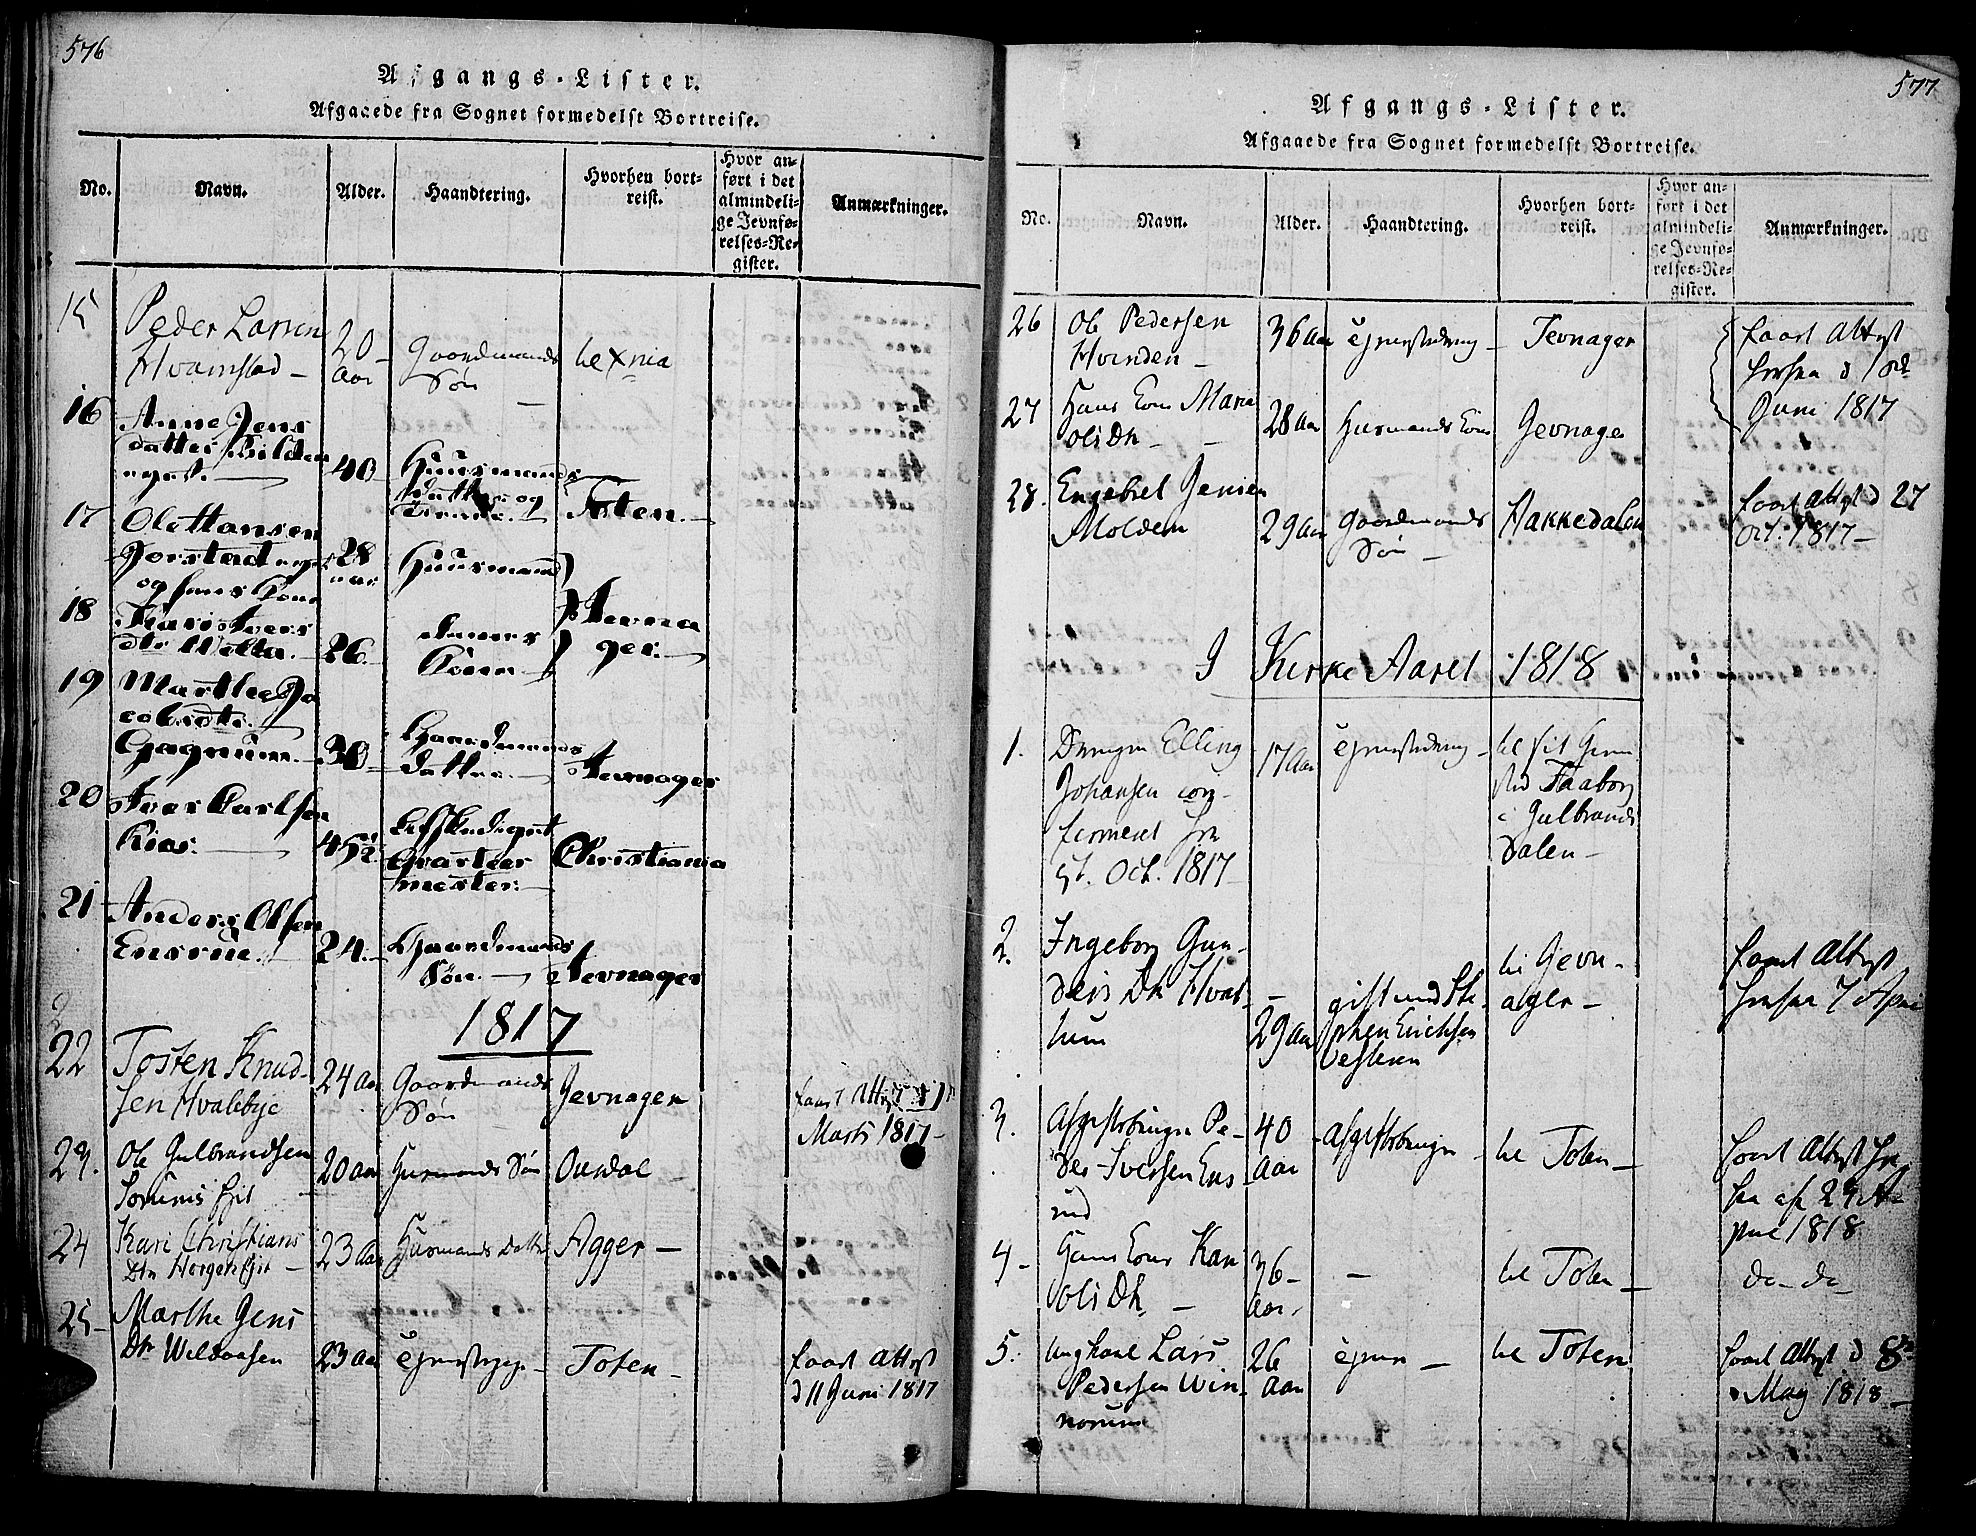 576
Afgangs-Lister.
Afgaaede fra Sognet formedelst Bortreise.
No. Navn. Alder. Haandtering. Hvorhen bort-reist. Hvor an-ført i det almindeli-ge Jevnfø-relses-Re-gister. Anmærkninger.
15 Peder Larsen
Hvamstad 20 Aar Gaardmands Søn til Xnia
16 Anne Jens
datter 40 Huusmands
Toten.
17 Ole Hansen
Gorstad 28 Aar Huusmand
og hans Kone
18 Kari Ivers
dtr Wølla 26 Kone Jevna
ger.
19 Marthe Ja
cobsdtr.
Gagnum 30 Gaardmands
datter Jevnager
20 Iver Carlsen
Kios. 45½ Afskediget
Qvarteer
mester. Christiania
21 Anders Olsen
Ensrue. 24. Gaardmands
Søn. Jevnager
1817
22 Tosten Knud-
sen Hvalebye 24 Aar Gaardmands
Søn Jevnager faaet Attest
Marts 1817
23. Ole Gulbrandsen
20 aar Husmands Søn Ourdal
24 Kari Christians
Dtr 23 Aar Husmands Datter Agger
25 Marthe Jens
Dtr 23 Aar Toten faaet Attest
d 11 Juni 1817
577
Afgangs-Lister.
Afgaaede fra Sognet formedelst Bortreise.
No. Navn. Alder. Haandtering. Hvorhen bort-reist. Hvor an-ført i det almindeli-ge Jevnfø-relses-Re-gister. Anmærkninger.
26 Ole Pedersen
Hvinden 36 Aar Jevnager faaet Attest
herfra d 1
Juni 1817
27 Hans Kone Maria
Olsdtr 28 Aar Husmands Kone Jevnager
28. Engebret Jensen
Molden 29 Aar Gaardmands
Søn Hakkedalen faaet Attest d 27
Oct. 1817
I Kirke Aaret 1818
1. Drengen Elling
Johansen con-
firmeret
Oct. 1817 17 Aar til sit
sted Faaborg
i Gulbrands
dalen
2. Ingeborg Gun-
ders Dtr Hval-
lum 29 Aar gift med Ste-
phen Erichsen
til Jevn-
ager faaet Attest
herfra 7 April
3. Pe-
der Iversen Ens-
rud 40 Aar til Toten faaet Attest her
fra af 29 A-
pril 1818
4 Hans Kone Kari
Ols Dtr 36 Aar. til Toten do do
5. Ungkarl Lars
Pedersen Win-
norum 26 Aar til Toten faaet Attest d 8de
May 1818